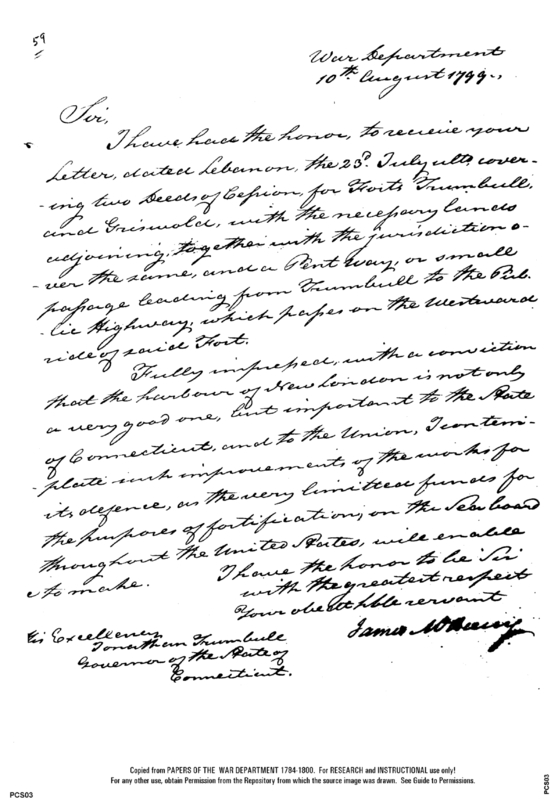 59
War Department
10th. August 1799.,
Sir,
I have had the honor, to receive your
Letter, dated Lebanon, the 23d. July ulto. cover-
-ing two Deeds of Cession, for Forts Trumbull,
and Griswold, with the necessary lands
adjoining, together with the jurisdiction o-
-ver the same, and a Pent way, or small
passage leading from Trumbull to the Pub-
-lic Highway, which passes on the Westward
side of said Fort.
Fully impressed, with a conviction
that the harbour of New London is not only
a very good one, but important to the State
of Connecticut, and to the Union, I contem-
-plate such improvements of the works for
its, defence, as the very limitted funds for
the purposes of fortification, on the Sea board
throughout the United States, will enable
to make.
I have the honor to be Sir
with the greatest respect
Your obedt hble servant
James McHenry
His Excellency
Jonathan Trumbull
Governor of the State of
Connecticut.
Copied from PAPERS OF THE WAR DEPARTMENT 1784-1800. For RESEARCH and INSTRUCTIONAL use only!
For any other use, obtain Permission from the Repository from which the source image was drawn. See Guide to Permissions.
PCS03
PCS03